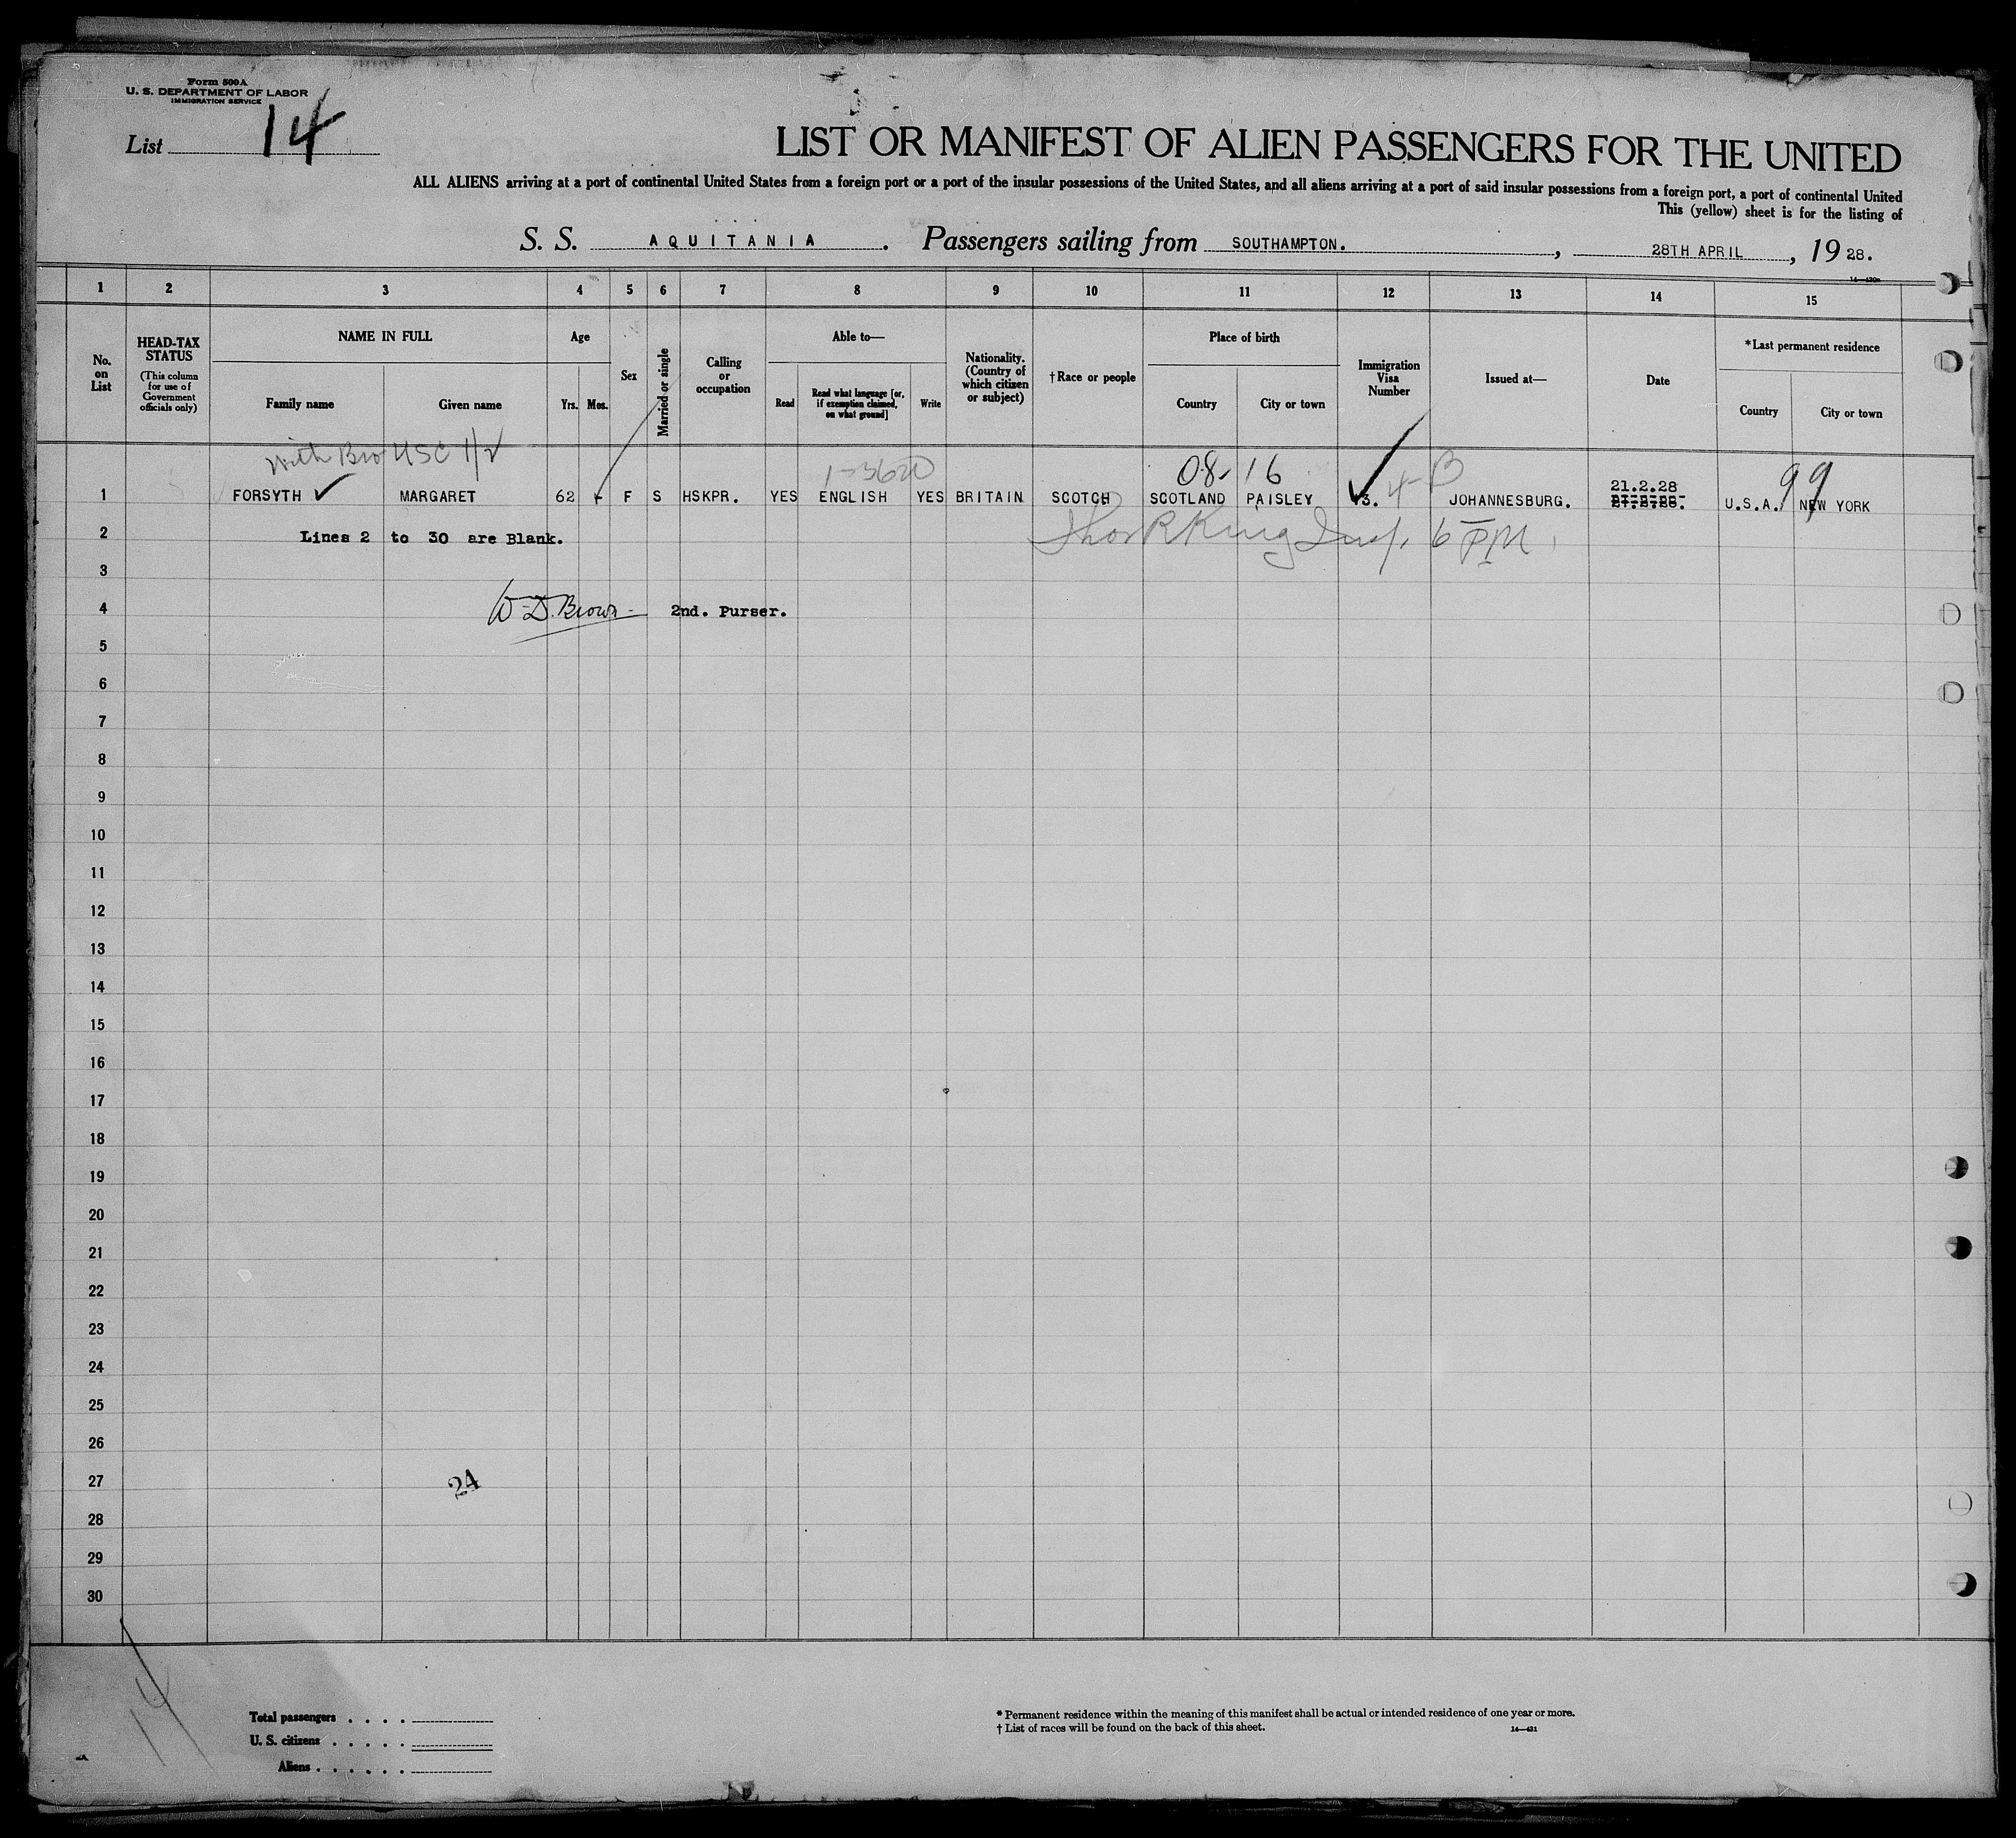 Form 500A
U. S. DEPARTMENT OF LABOR
IMMIGRATION SERVICE
List 14
LIST OR MANIFEST OF ALIEN PASSENGERS FOR THE UNITED
ALL ALIENS arriving at a port of continental United States from a foreign port or a port of the insular possessions of the United States, and all aliens arriving at a port of said insular possessions from a foreign port, a port of continental United
This (yellow) sheet is for the listing of
S. S. AQUITANIA. Passengers sailing from SOUTHAMPTON., 28TH APRIL, 1928.
1 2 3 4 5 6 7 8 9 10 11 12 13 14 15
No. on List
HEAD-TAX STATUS (This column for use of Government officials only)
NAME IN FULL
Family name Given name
Age
Yrs. Mos.
Sex
Married or single
Calling or occupation
Able to—
Read Read what language [or, if exemption claimed, on what ground] Write
Nationality. (Country of which citizen or subject)
†Race or people
Place of birth
Country City or town
Immigration Visa Number
Issued at—
Date
*Last permanent residence
Country City or town
with Bro USC
08- 16 4-B 99
1 FORSYTH ✓ MARGARET 62 F S HSKPR. YES ENGLISH YES BRITAIN SCOTCH SCOTLAND PAISLEY JOHANNESBURG. 21.2.28 U.S.A. NEW YORK
2 Lines 2 to 30 are Blank. Thos R King Insp. 6 PM
3
4 W. D. Brown 2nd. Purser.
5
6
7
8
9
10
11
12
13
14
15
16
17
18
19
20
21
22
23
24
25
26
27 24
28
29
30
14
Total passengers . . . .
U. S. citizens . . . . .
Aliens . . . . . .
* Permanent residence within the meaning of this manifest shall be actual or intended residence of one year or more.
† List of races will be found on the back of this sheet. 14—431